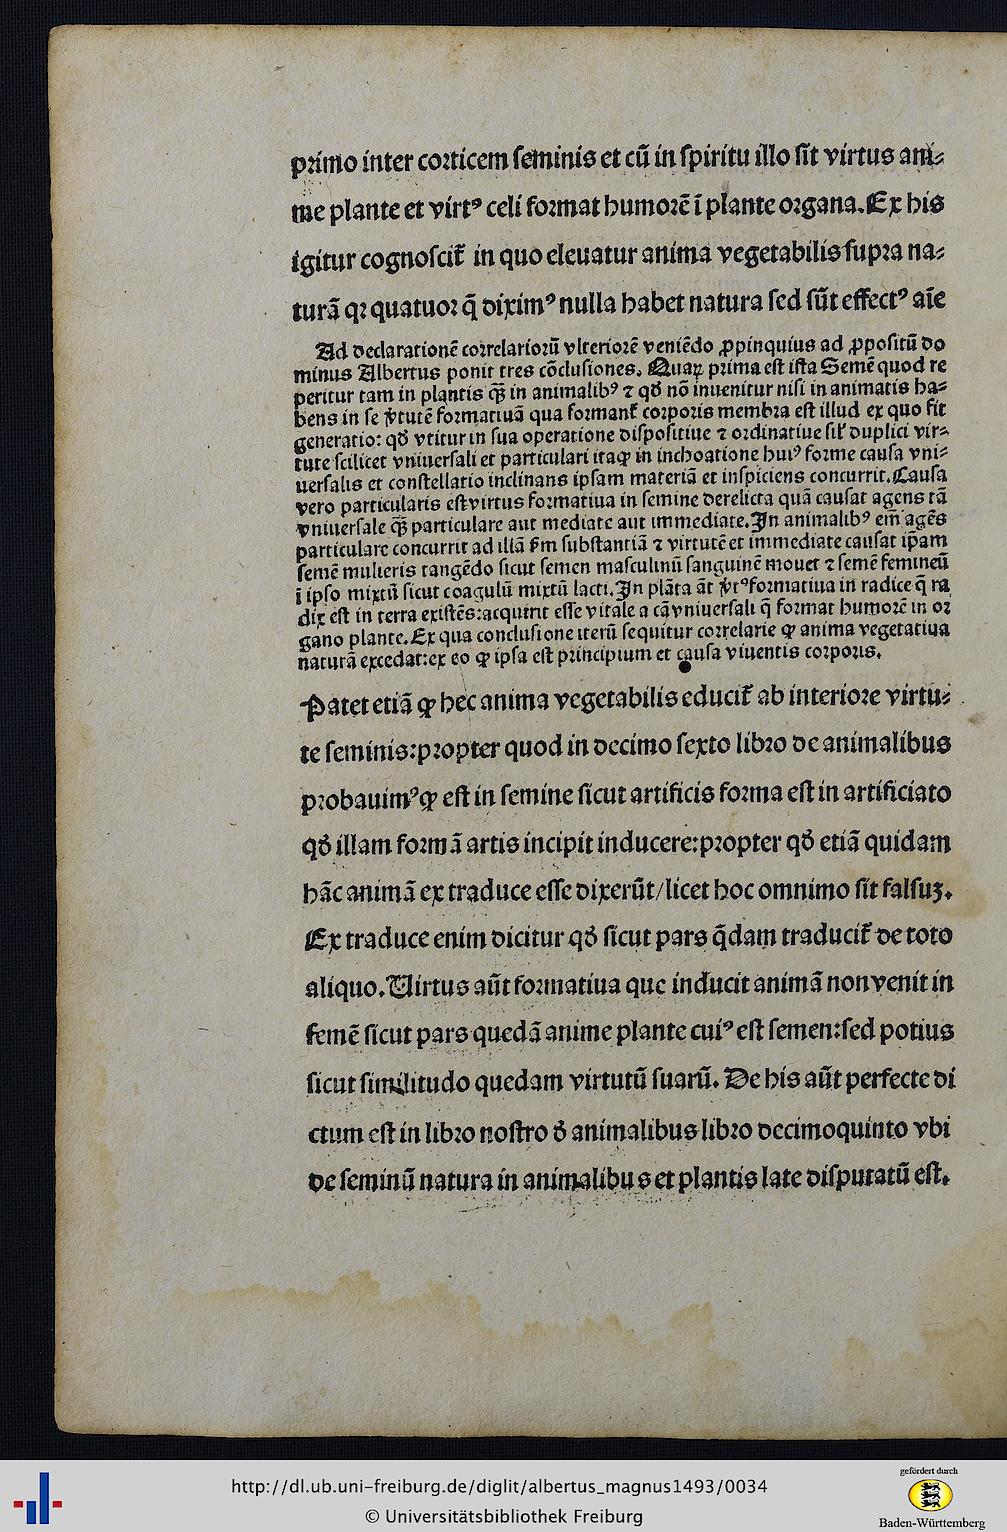 primo inter corticem seminis et cū in spiritu illo sit virtus ani⸗
me plante et virtꝰ celi format humorē ī plante organa. Ex his
igitur cognoscit᷑ in quo eleuatur anima vegetabilis supra na⸗
turā qꝛ quatuor q̄ diximꝰ nulla habet natura sed sūt effectꝰ aīe
Ad declarationē correlariorū vlteriorē veniēdo ꝓpinquius ad ꝓpositū do
minus Albertus ponit tres cōclusiones. Quaꝝ prima est ista Semē quod re
peritur tam in plantis qȝ̄ in animalibꝰ ⁊ qđ nō inuenitur nisi in animatis ha⸗
bens in se v̓tutē formatiuā qua formant᷑ corporis membra est illud ex quo fit
generatio: qđ vtitur in sua operatione dispositiue ⁊ ordinatiue sil᷑ duplici vir⸗
tute scilicet vniuersali et particulari itaꝙ in inchoatione huiꝰ forme causa vni⸗
uersalis et constellatio inclinans ipsam materiā et inspiciens concurrit. Causa
vero particularis est virtus formatiua in semine derelicta quā causat agens tā
vniuersale qȝ̄ particulare aut mediate aut immediate. In animalibꝰ em̄ agēs
particulare concurrit ad illā f̓m substantiā ⁊ virtutē et immediate causat ip̄am
semē mulieris tangēdo sicut semen masculinū sanguinē mouet ⁊ semē femineū
ī ipso mixtū sicut coagulū mixtū lacti. In plāta āt v̓tꝰ formatiua in radice q̄ ra
dix est in terra existēs: acquirit esse vitale a cā vniuersali q̄ format humorē in or
gano plante. Ex qua conclusione iterū sequitur correlarie ꝙ anima vegetatiua
naturā excedat: ex eo ꝙ ipsa est principium et causa viuentis corporis.
Patet etiā ꝙ hec anima vegetabilis educit᷑ ab interiore virtu⸗
te seminis: propter quod in decimo sexto libro de animalibus
probauimꝰ ꝙ est in semine sicut artificis forma est in artificiato
qđ illam formā artis incipit inducere: propter qđ etiā quidam
hāc animā ex traduce esse dixerūt/ licet hoc omnimo sit falsuꝫ.
Ex traduce enim dicitur qđ sicut pars q̄dam traducit᷑ de toto
aliquo. Uirtus aūt formatiua que inducit animā non venit in
semē sicut pars quedā anime plante cuiꝰ est semen: sed potius
sicut similitudo quedam virtutū suarū. De his aūt perfecte di
ctum est in libro nostro đ animalibus libro decimoquinto vbi
de seminū natura in animalibus et plantis late disputatū est.
http://dl.ub.uni-freiburg.de/diglit/albertus_magnus1493/0034
© Universitätsbibliothek Freiburg
gefördert durch
Baden-Württemberg